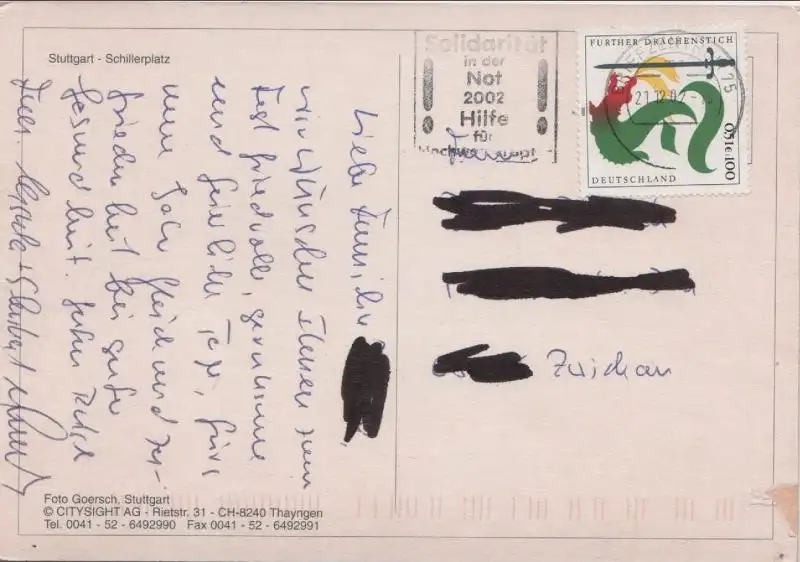 Stuttgart - Schillerplatz
Solidarität
in der
Not
2002
Hilfe
für
FURTHER DRACHENSTICH
DEUTSCHLAND
0,51€ 100
21.12.02
75
Familie
Zwickau
Liebe Familie
wir wünschen Ihnen zum
Fest friedvolle, geruhsame
und feierliche Tage, fürs
neue Jahr Glück und Zu-
friedenheit bei guter
Gesundheit.
Foto Goersch, Stuttgart
© CITYSIGHT AG - Rietstr. 31 - CH-8240 Thayngen
Tel. 0041 - 52 - 6492990 Fax 0041 - 52 - 6492991